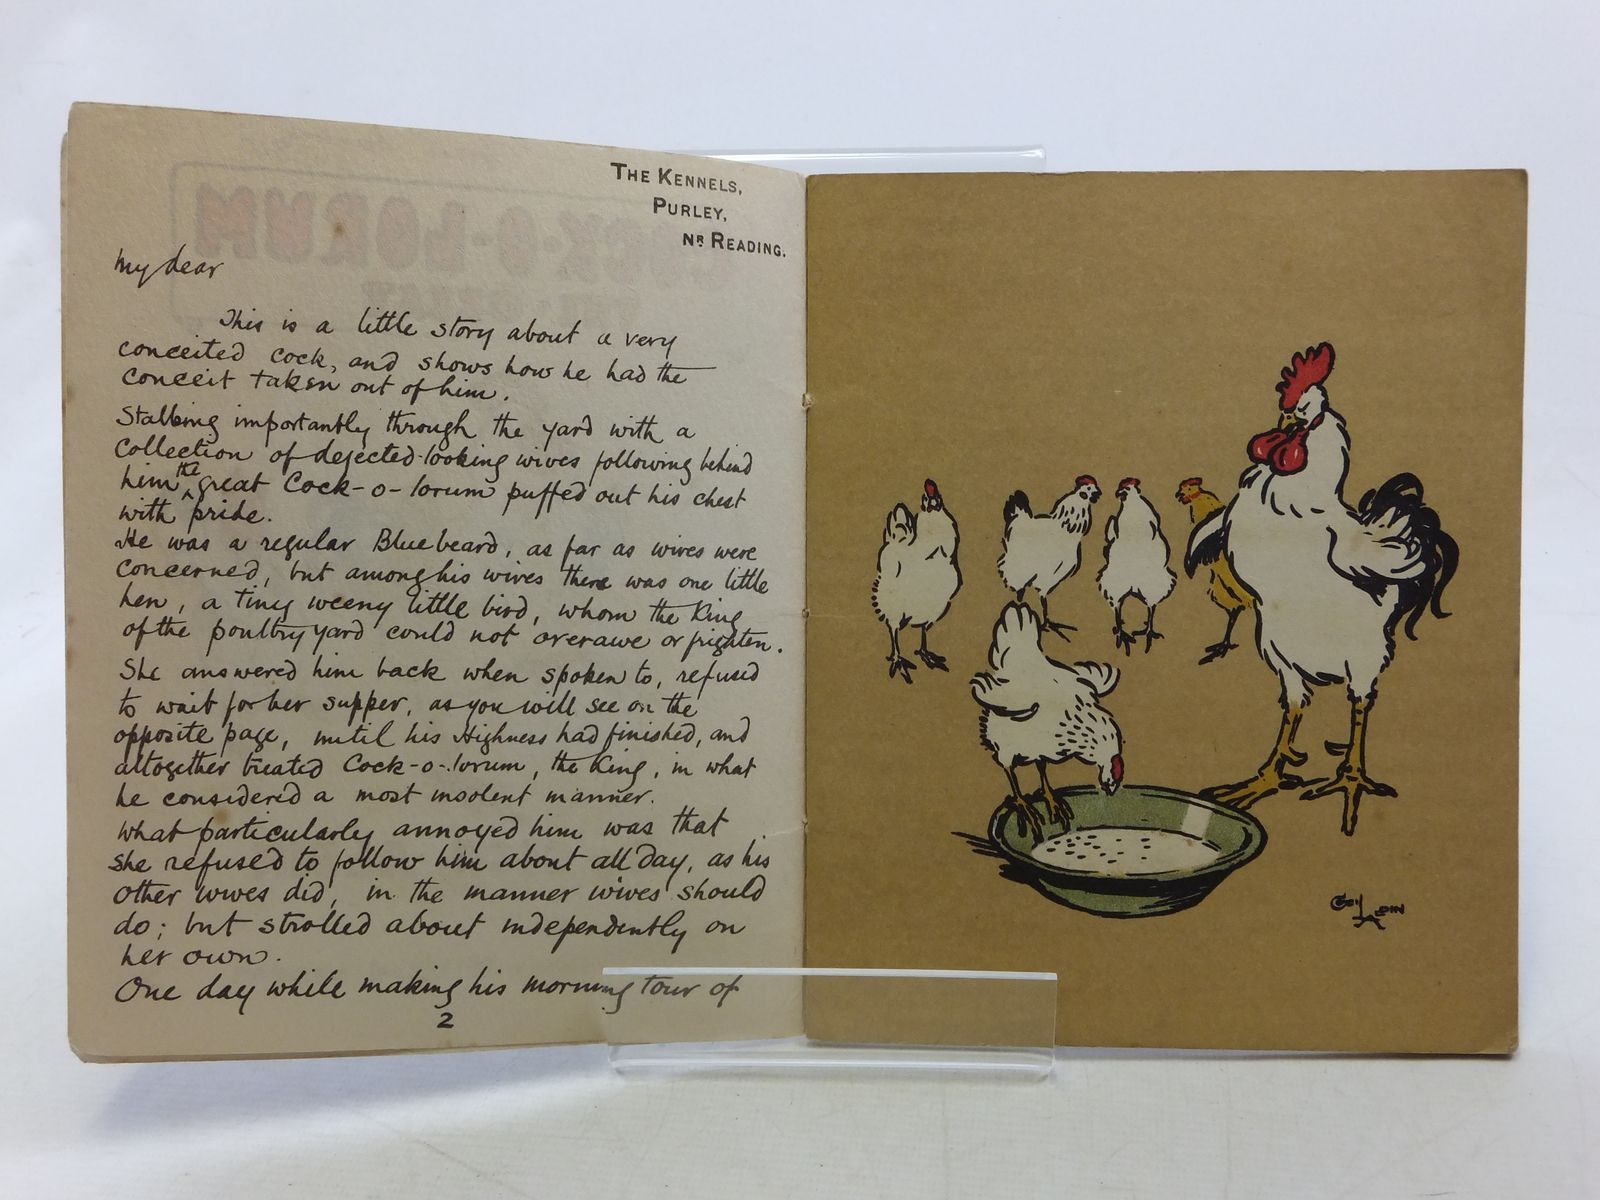 THE KENNELS,
PURLEY,
NR READING.
My dear
This is a little story about a very
conceited cock, and shows how he had the
conceit taken out of him.
Stalking importantly through the yard with a
collection of dejected-looking wives following behind
him the great Cock-o-lorum puffed out his chest
with pride.
He was a regular Bluebeard, as far as wives were
concerned, but among his wives there was one little
hen, a tiny weeny little bird, whom the King
of the poultry yard could not overawe or frighten.
She answered him back when spoken to, refused
to wait for her supper, as you will see on the
opposite page, until his Highness had finished, and
altogether treated Cock-o-lorum, the King, in what
he considered a most insolent manner.
What particularly annoyed him was that
she refused to follow him about all day, as his
other wives did, in the manner wives should
do; but strolled about independently on
her own.
One day while making his morning tour of
2
CECIL ALDIN